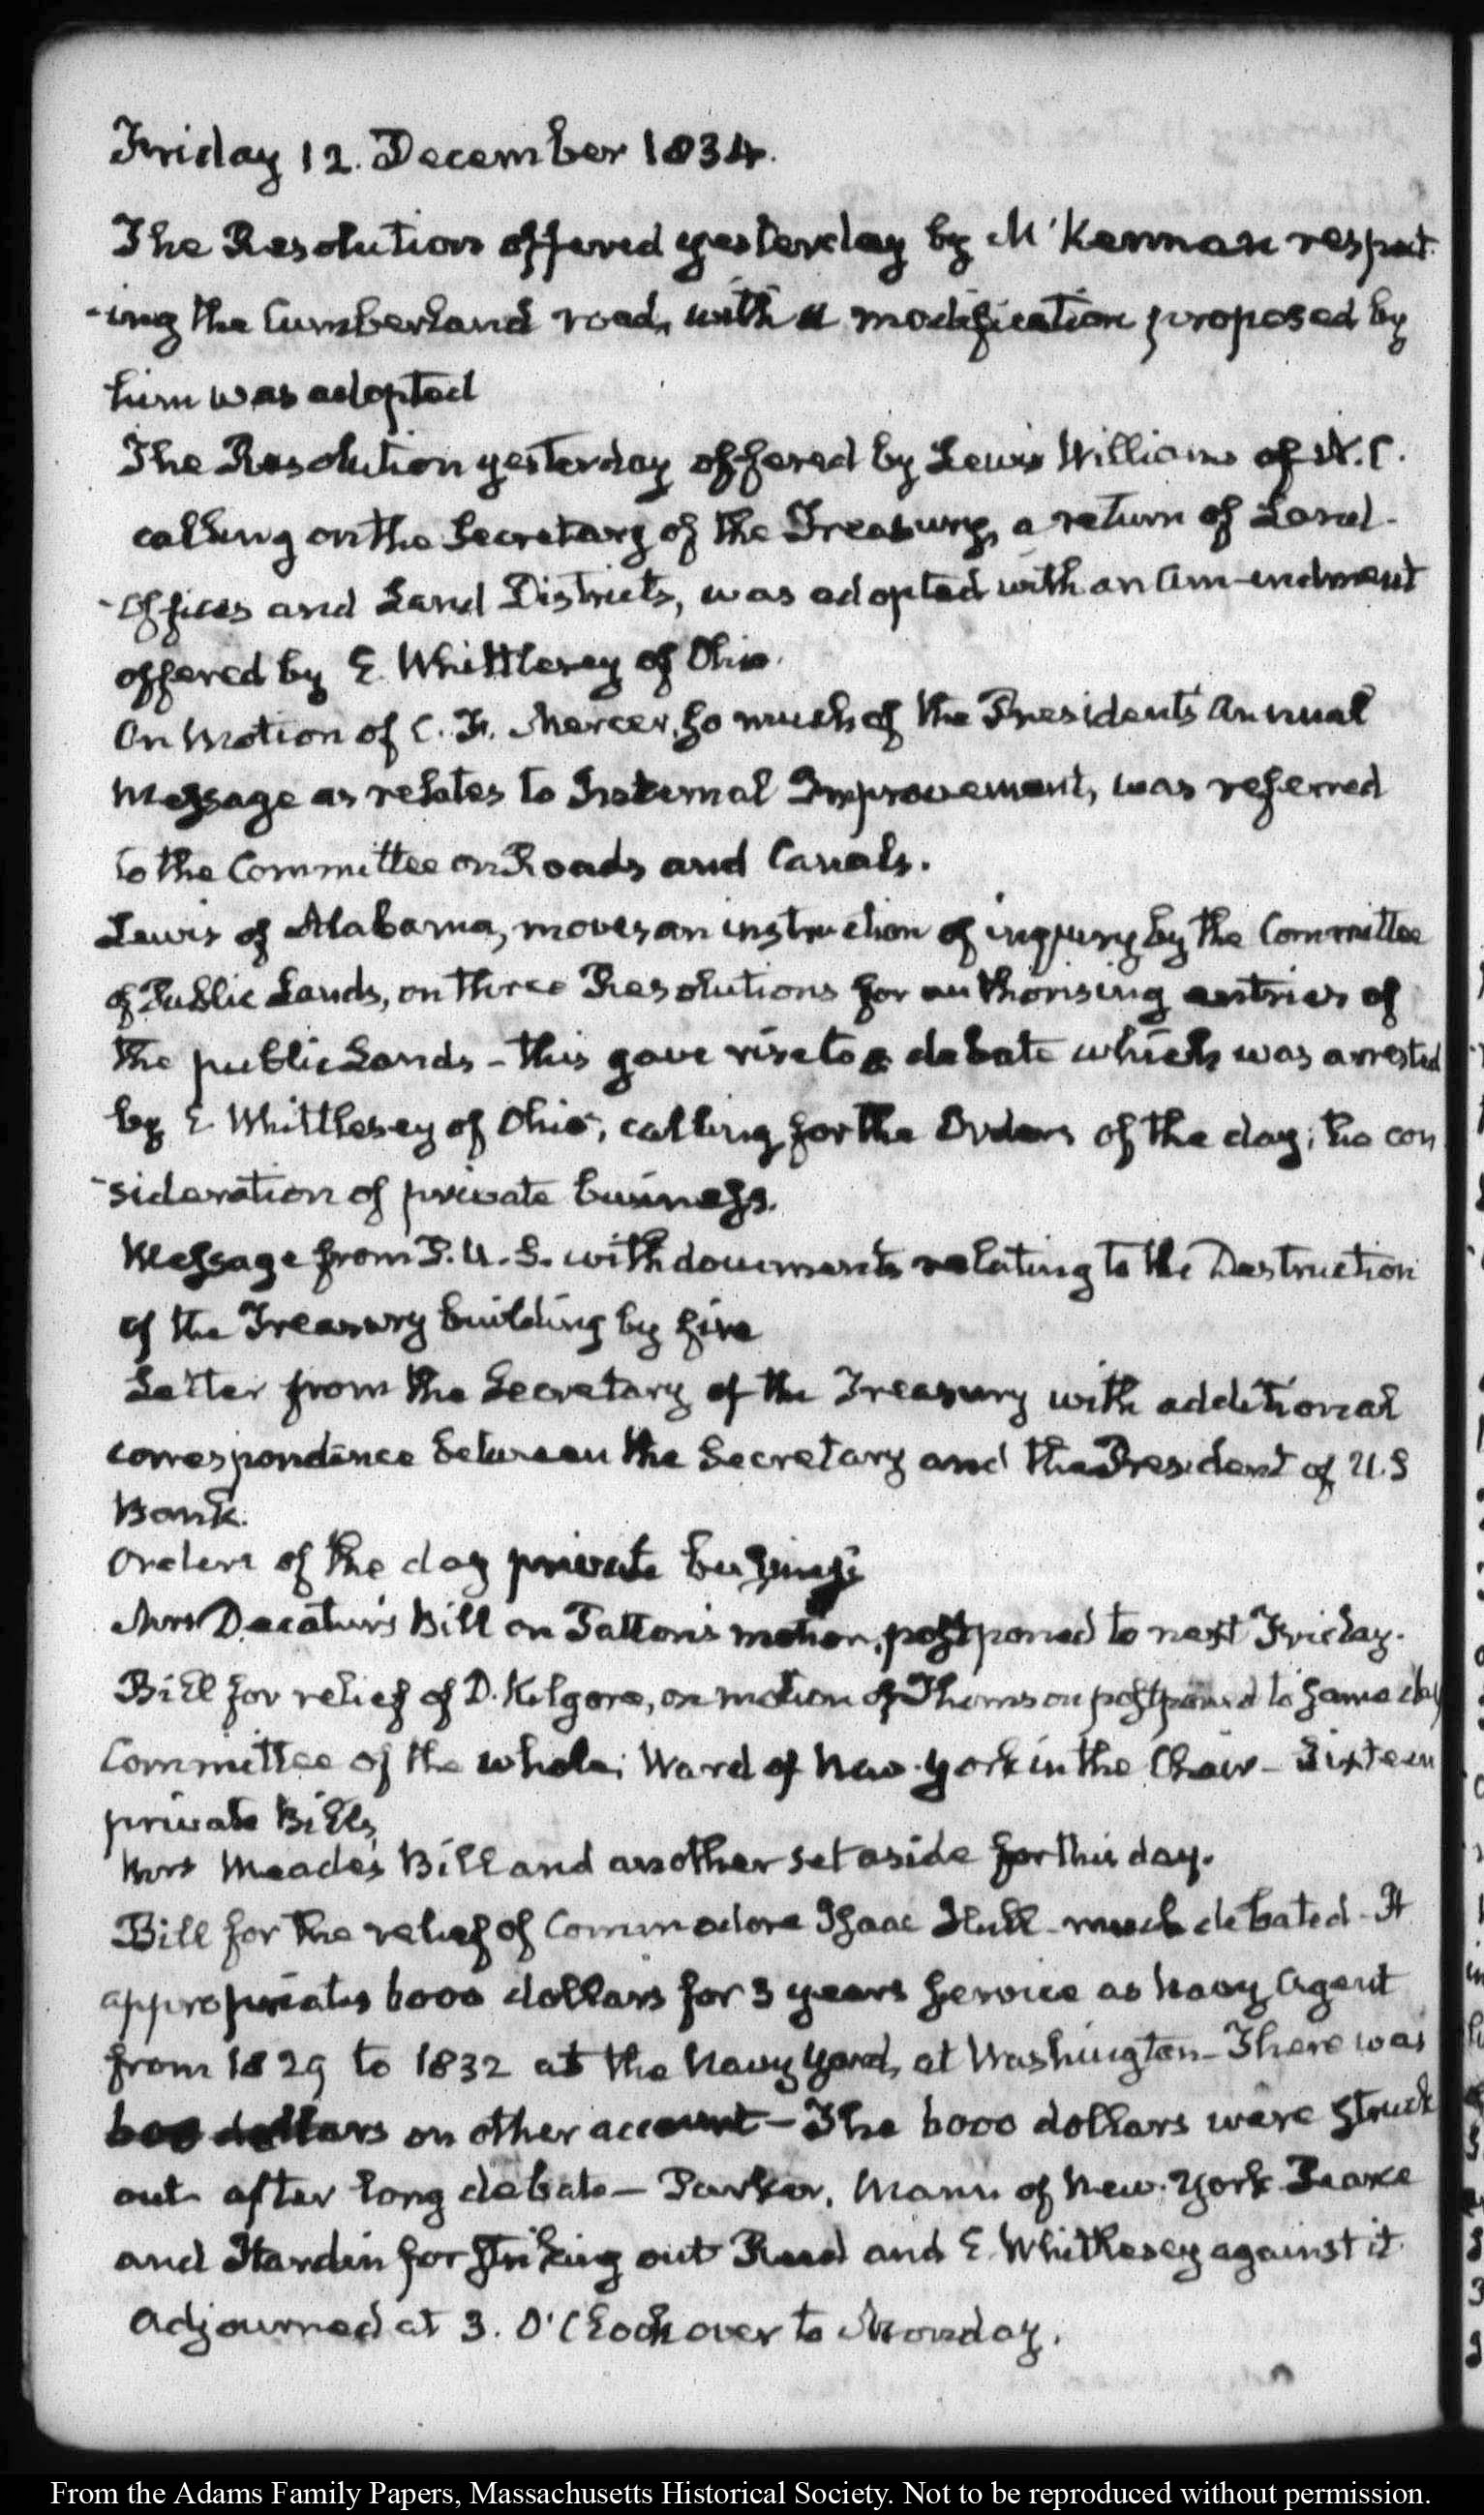 Friday 12. December 1834.
The Resolution offered yesterday by M'Kennan respect-
-ing the Cumberland road, with a modification proposed by
him was adopted
The Resolution yesterday offered by Lewis Williams of N.C.
calling on the Secretary of the Treasury, a return of Land-
-Offices and Land Districts, was adopted with an Amendment
offered by E. Whittlesey of Ohio.
On Motion of C. F. Mercer, so much of the Presidents Annual
Message as relates to Internal Improvement, was referred
to the Committee on Roads and Canals.
Lewis of Alabama, moves an instruction of inquiry by the Committee
of Public Lands, on three Resolutions for authorising entries of
the public Lands – this gave rise to a debate which was arrested
by E Whittlesey of Ohio, calling for the Orders of the day; the con
-sideration of private business.
Message from P.U.S. with documents relating to the Destruction
of the Treasury building by fire
Letter from the Secretary of the Treasury with additional
correspondence between the Secretary and the President of U.S
Bank.
Orders of the day private business
Mrs Decatur's Bill on Patton's motion, postponed to next Friday.
Bill for relief of D. Kilgore, on motion of Thomson postponed to same day
Committee of the whole; Ward of New-York in the Chair – Sixteen
private Bills
Mrs Meade's Bill and another set aside for this day.
Bill for the relief of Commodore Isaac Hull – much debated – It
appropriates 6000 dollars for 3 years service as Navy Agent
from 1829 to 1832 at the Navy Yard, at Washington – There was
600 dollars on other account – The 6000 dollars were struck
out after long debate – Parker, Mann of New-York Pearce
and Hardin for striking out Reed and E. Whittlesey against it
Adjourned at 3. O'Clock over to Monday.
From the Adams Family Papers, Massachusetts Historical Society. Not to be reproduced without permission.